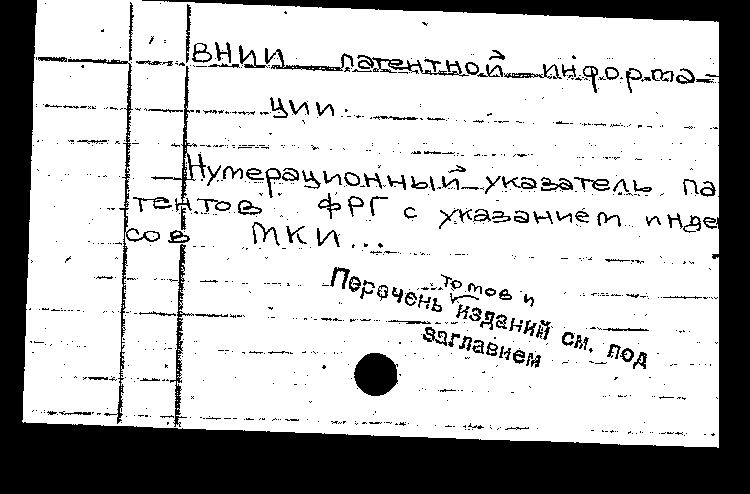 ВНИИ патентной информа-
ции.
Нумерационный указатель па
тентов ФРГ с указанием инде
сов МКИ...
томов и
Перечень изданий см. под
заглавием